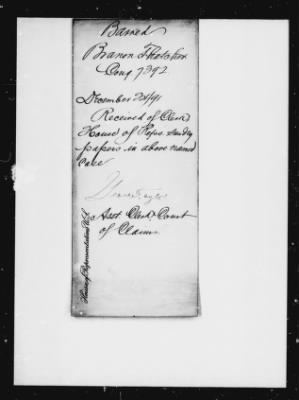 Barred
Cong 7392
December 23/91
Received of Clerk
House of Reps. Sundry
papers in above named
Case
Asst Clerk Court
of Claims
House of Representatives U.S.